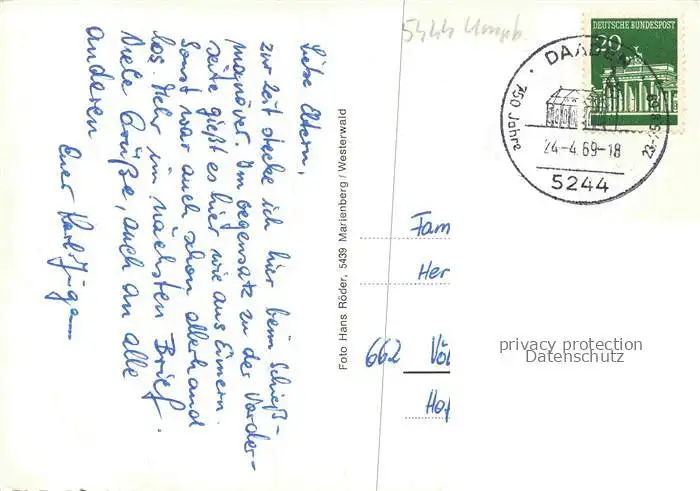 Liebe Eltern,
zur Zeit stecke ich hier beim Schieß-
manöver. Im Gegensatz zu der Vorder-
seite gießt es hier wie aus Eimern.
Sonst war auch schon allerhand
los. Mehr im nächsten Brief.
Viele Grüße, auch an alle
anderen
Euer Karl-Jürgen
Foto Hans Röder, 5439 Marienberg / Westerwald
5244
DEUTSCHE BUNDESPOST
20
DAADEN
750 Jahre
24-4.69-18
5244
Fam
Her
662 Völ
Hof
privacy protection
Datenschutz